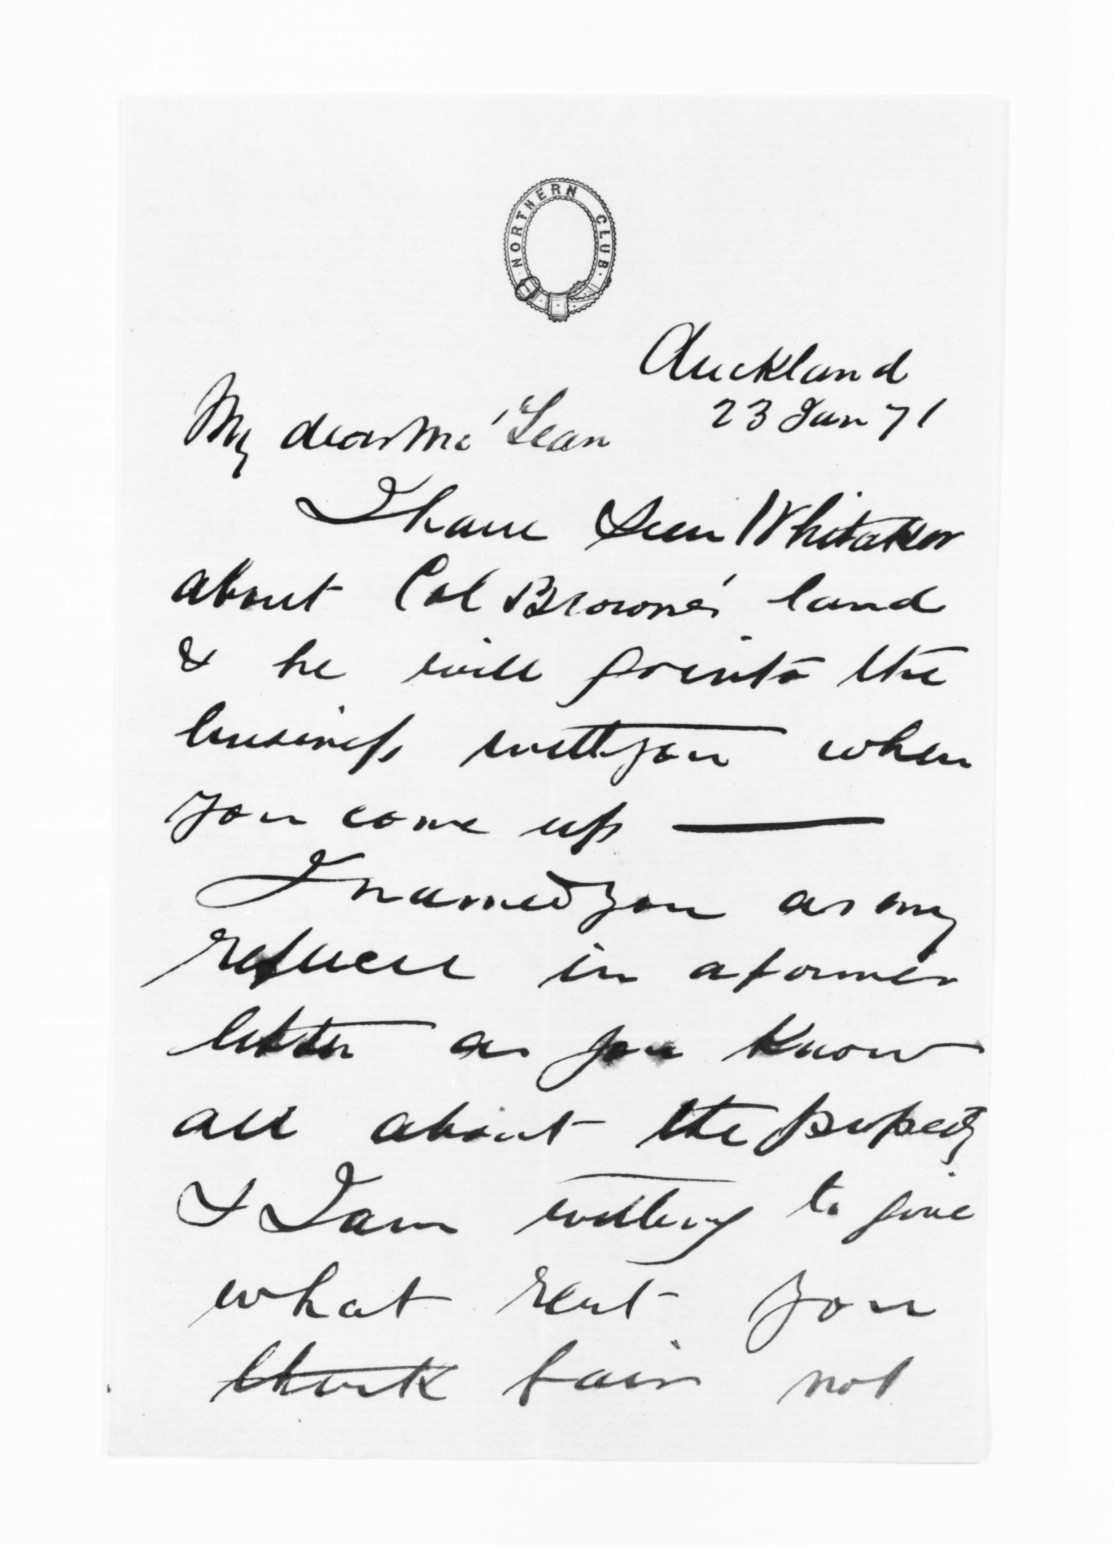 NORTHERN CLUB.
Auckland
23 Jan 71
My dear Mc'Lean
I have seen Whitaker
about Col Browne's land
& he will go into the
business with you when
you come up —
I named you as my
referee in a former
letter as you know
all about the property
& I am willing to give
what rent you
think fair not